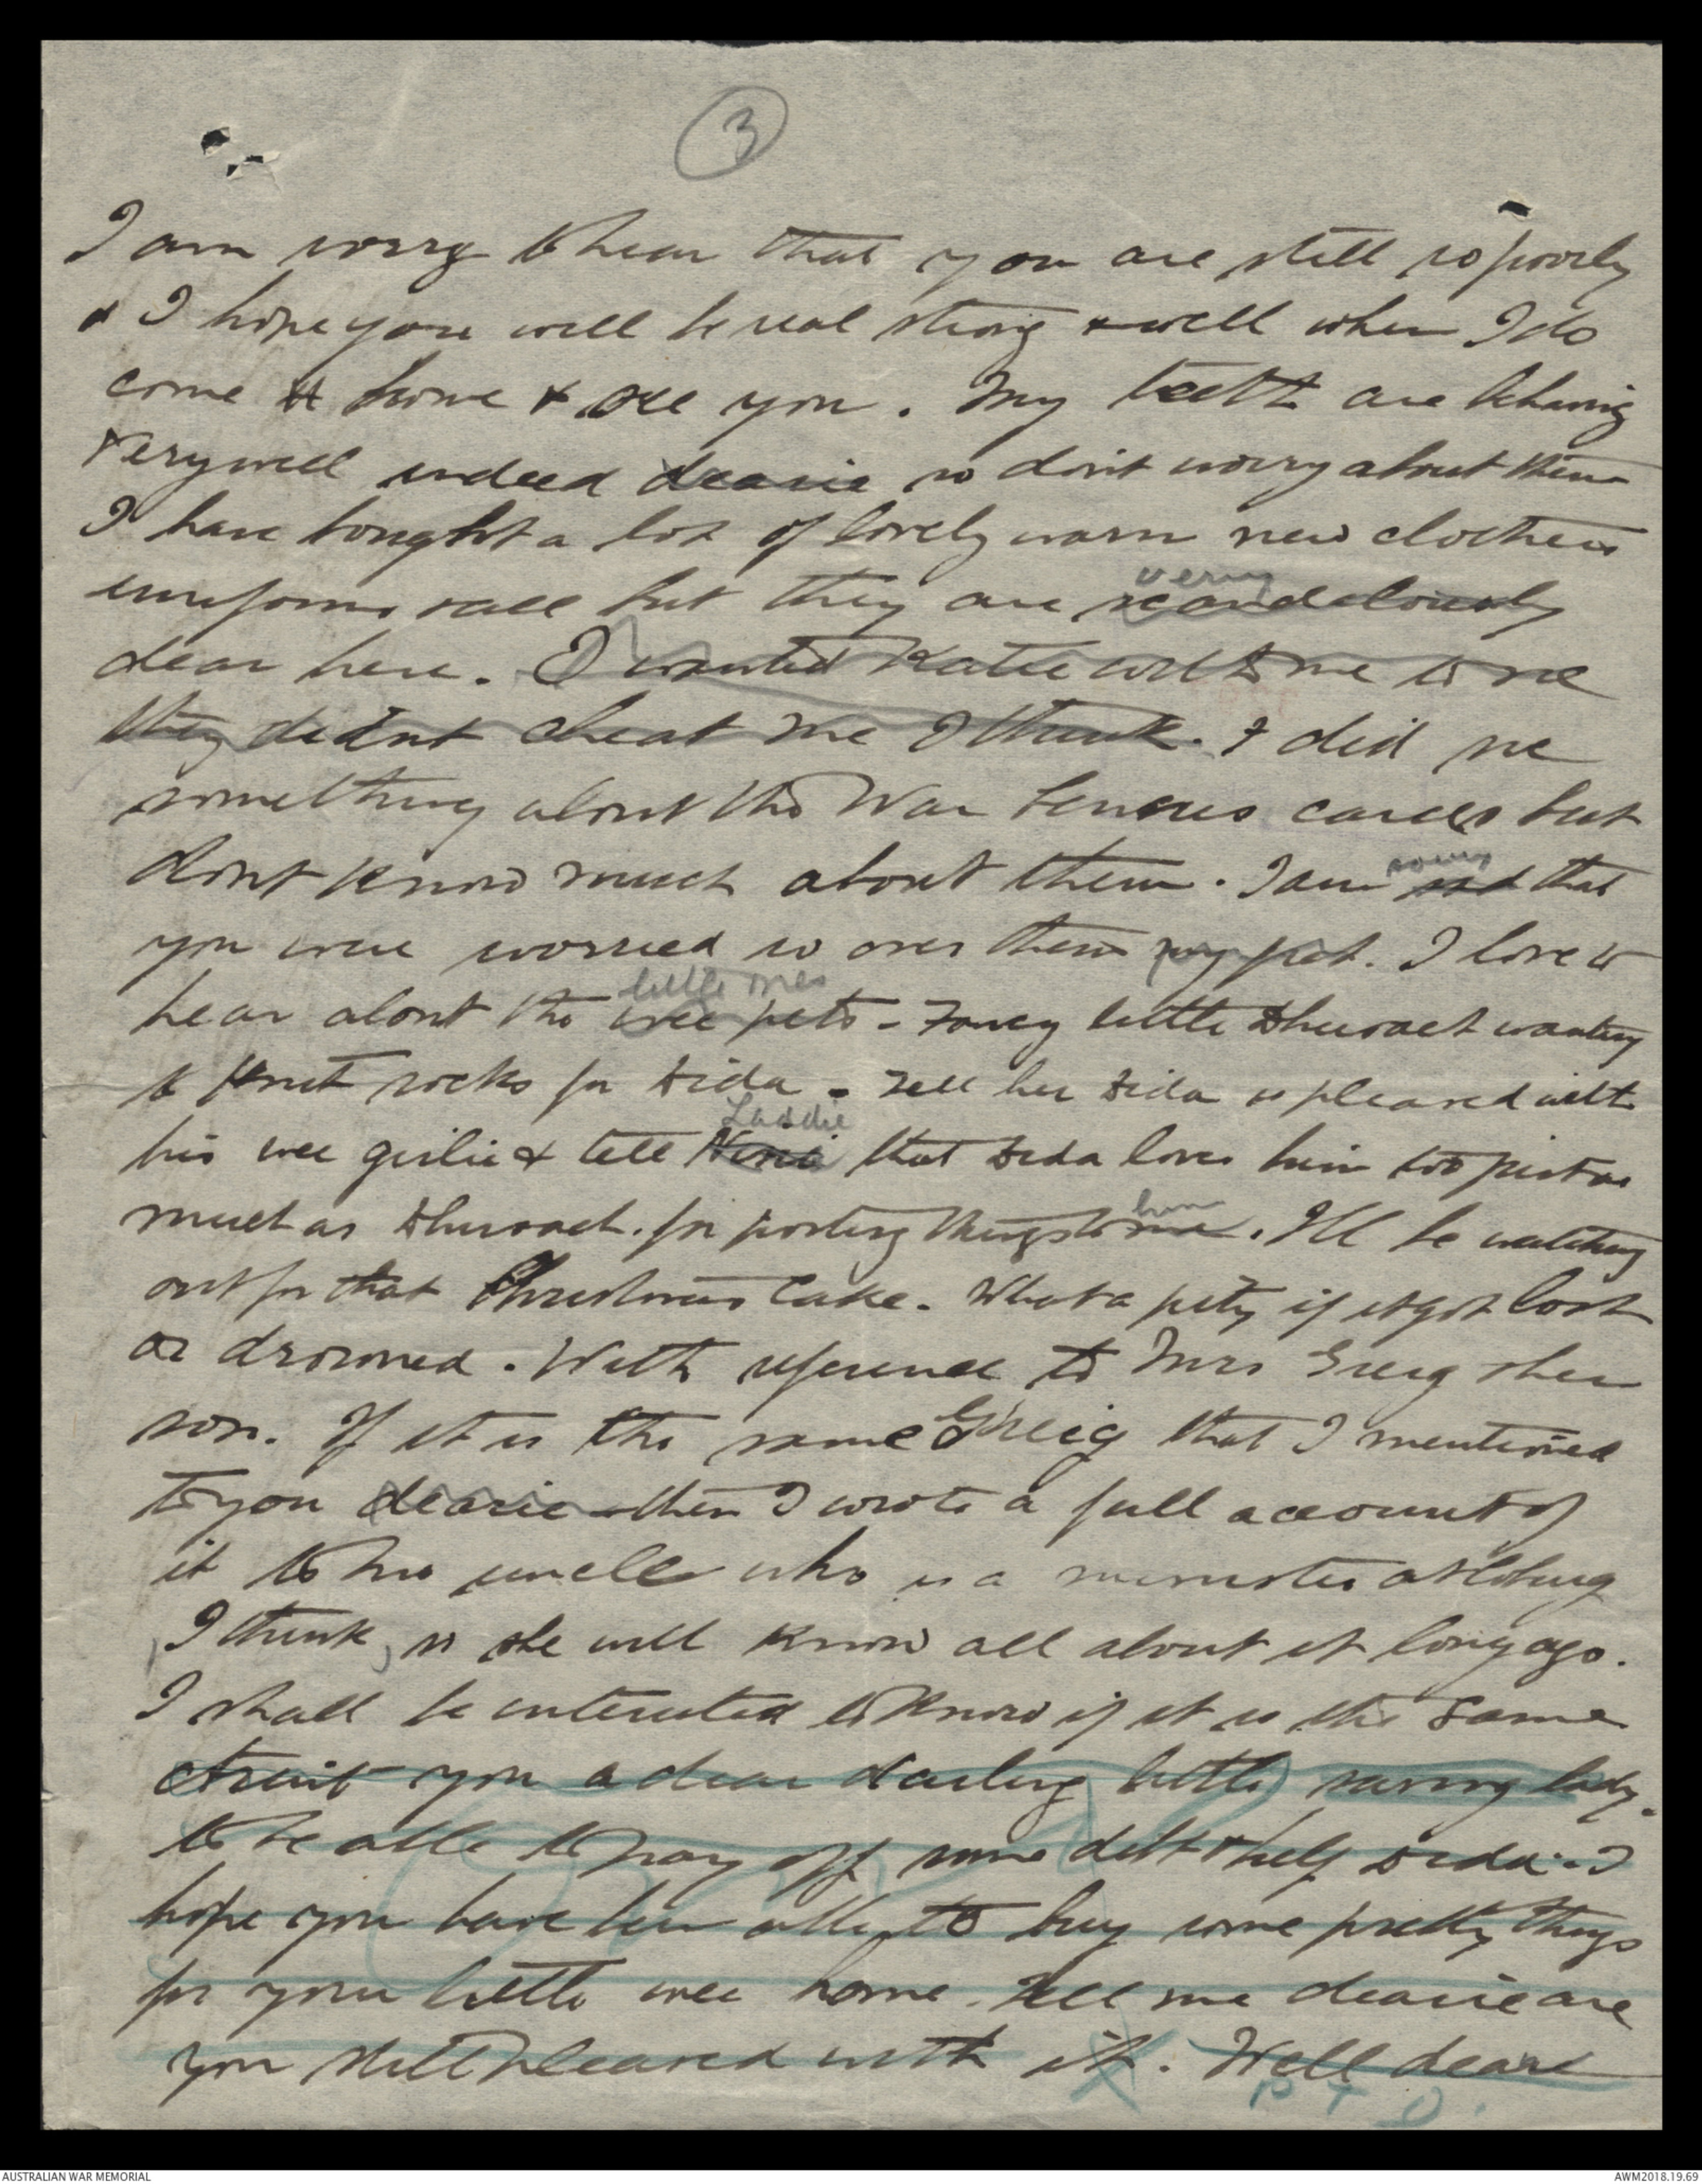 3
I am sorry to hear that you are still so poorly
& I hope you will be real strong & well when I do
come home & see you. My teeth are behaving
very well indeed dearie so don't worry about them
I have bought a lot of lovely warm new clothes
uniforms & all but they are scandalously very
dear here. I wanted Katie with me to see
they didnt cheat me I think. I did see
something about the War cards but
dont know much about them. I am sad sorry that
you were worried so over them my pet. I love to
hear about the wee pets little ones - Fancy little Dhuroach wanting
to knit socks for Dida - Tell her Dida is pleased with
his wee girlie & tell Laddie that Dida loves him too just as
much as Dhuroach. for posting things to me him. I'll be watching
out for that Christmas Cake. What a pity if it got lost
or drowned. With reference to Mrs Greig & her
son. If it is the same Greig that I mentioned
to you dearie then I wrote a full account of
it to his uncle who is a minister at
I think, so she will know all about it long ago.
I shall be interested to know if it is the same
Arent you a dear darling little saving lady.
to be able to pay off some debt & help Dida. I
hope you have been able to buy some pretty things
for your little wee home. Tell me dearie are
you still pleased with it. Well dear
P T O.
AUSTRALIAN WAR MEMORIAL
AWM2018.19.69